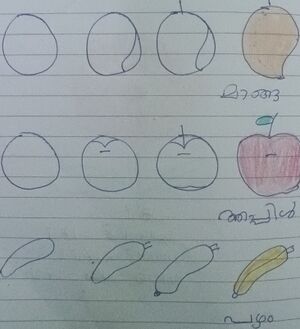 മാങ്ങ
ആപ്പിൾ
പഴം